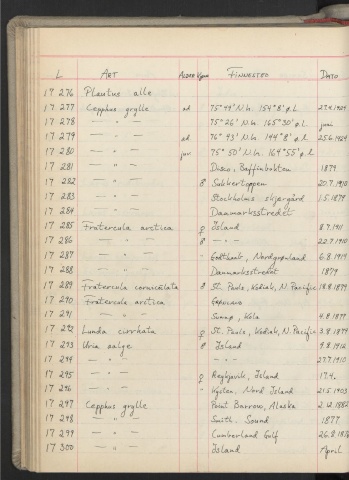 L ART ALDER Kjønn FINNESTED DATO
17 276 Plautus alle
17 277 Cepphus grylle ad 75° 49' N.b. 154° 8' ø.l. 27.4.1924
17 278 — " — 75° 26' N.b. 165° 30' ø.l. juni
17 279 — " — ad 76° 43' N.b. 144° 8' ø.l. 25.6.1924
17 280 — " — juv 75° 50' N.b. 164° 55' ø.l.
17 281 — " — Disco, Baffinbukten 1879
17 282 — " — ♂ Sukkertoppen 20.7.1910
17 283 — " — Stockholms skjærgård 1.5.1879
17 284 — " — Danmarksstredet
17 285 Fratercula arctica ♀ Island 8.7.1911
17 286 — " — ♂ — " — 22.7.1910
17 287 — " — " Godthaab, Nordgrønland 6.8.1919
17 288 — " — Danmarksstredet 1879
17 289 Fratercula corniculata ♂ St. Paulo, Kodiak, N. Pacific 18.8.1879
17 290 Fratercula arctica
17 291 — " — Kola 4.8.1879
17 292 Lunda cirrhata ♀ St. Paulo, Kodiak, N. Pacific 3.8.1879
17 293 Uria aalge ♂ Island 9.8.1912
17 294 — " — — " — 27.7.1910
17 295 — " — ♀ Reykjavik, Island 17.4.
17 296 — " — " Kysten, Nord Island 21.5.1903
17 297 Cepphus grylle Point Barrow, Alaska 2.12.1882
17 298 — " — Smith. Sound 1877
17 299 — " — Cumberland Gulf
17 300 — " — Island April